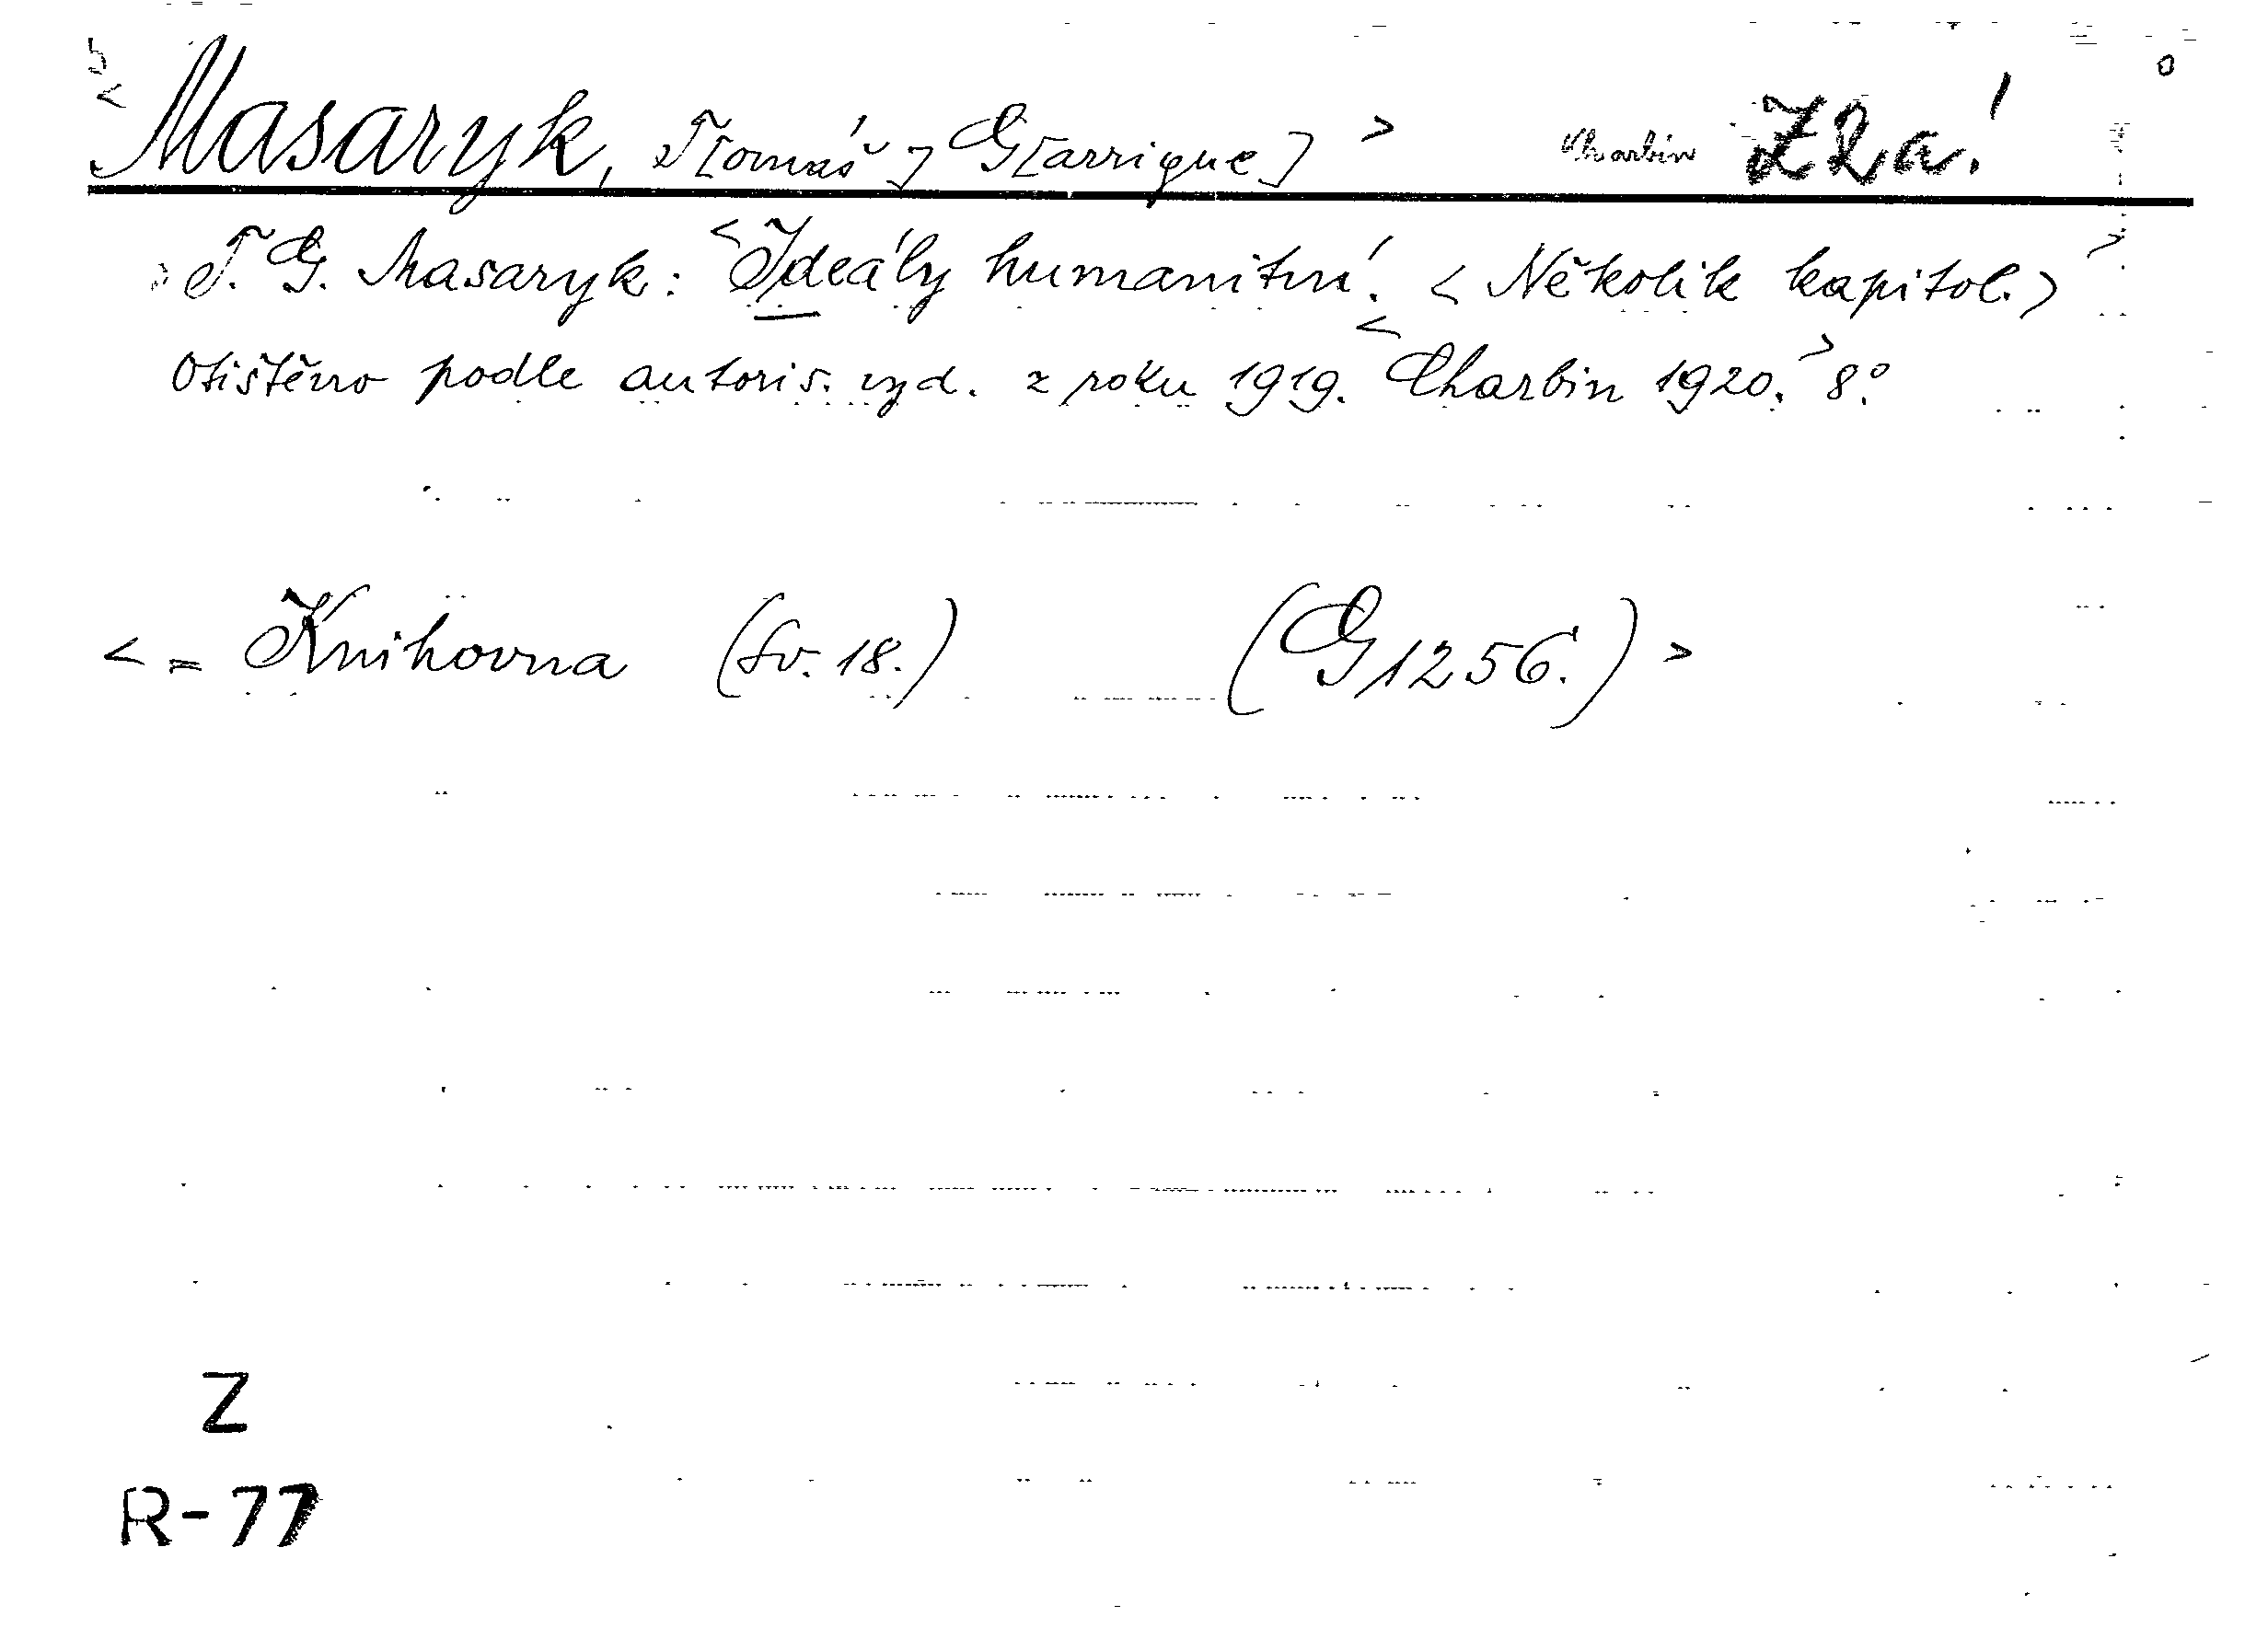 <Masaryk, T[omáš] G[arrigue]> Charbin Z2a!
T. G. Masaryk: <Ideály humanitní. <Několik kapitol.>>
Otištěno podle autoris. vyd. z roku 1919. <Charbin 1920.> 8°.
<= Knihovna (Sv. 18.) (G 1256.)>
Z
R-77